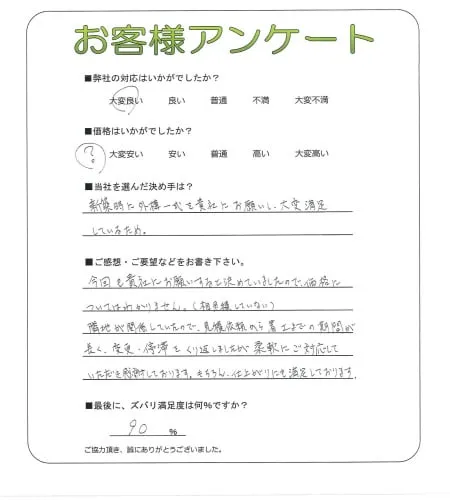 お客様アンケート
■弊社の対応はいかがでしたか？
大変良い 良い 普通 不満 大変不満
■価格はいかがでしたか？
? 大変安い 安い 普通 高い 大変高い
■当社を選んだ決め手は？
新築時に外構一式も貴社にお願いし、大変満足
しているため。
■ご感想・ご要望などをお書き下さい。
今回も貴社にお願いすると決めていましたので、価格に
ついてはわかりません。(相見積していない)
隣地が関係していたので、見積依頼から着工までの期間が
長く、変更・停滞をくり返しましたが柔軟にご対応して
いただき感謝しております。もちろん、仕上がりにも満足しております。
■最後に、ズバリ満足度は何%ですか？
90 %
ご協力頂き、誠にありがとうございました。